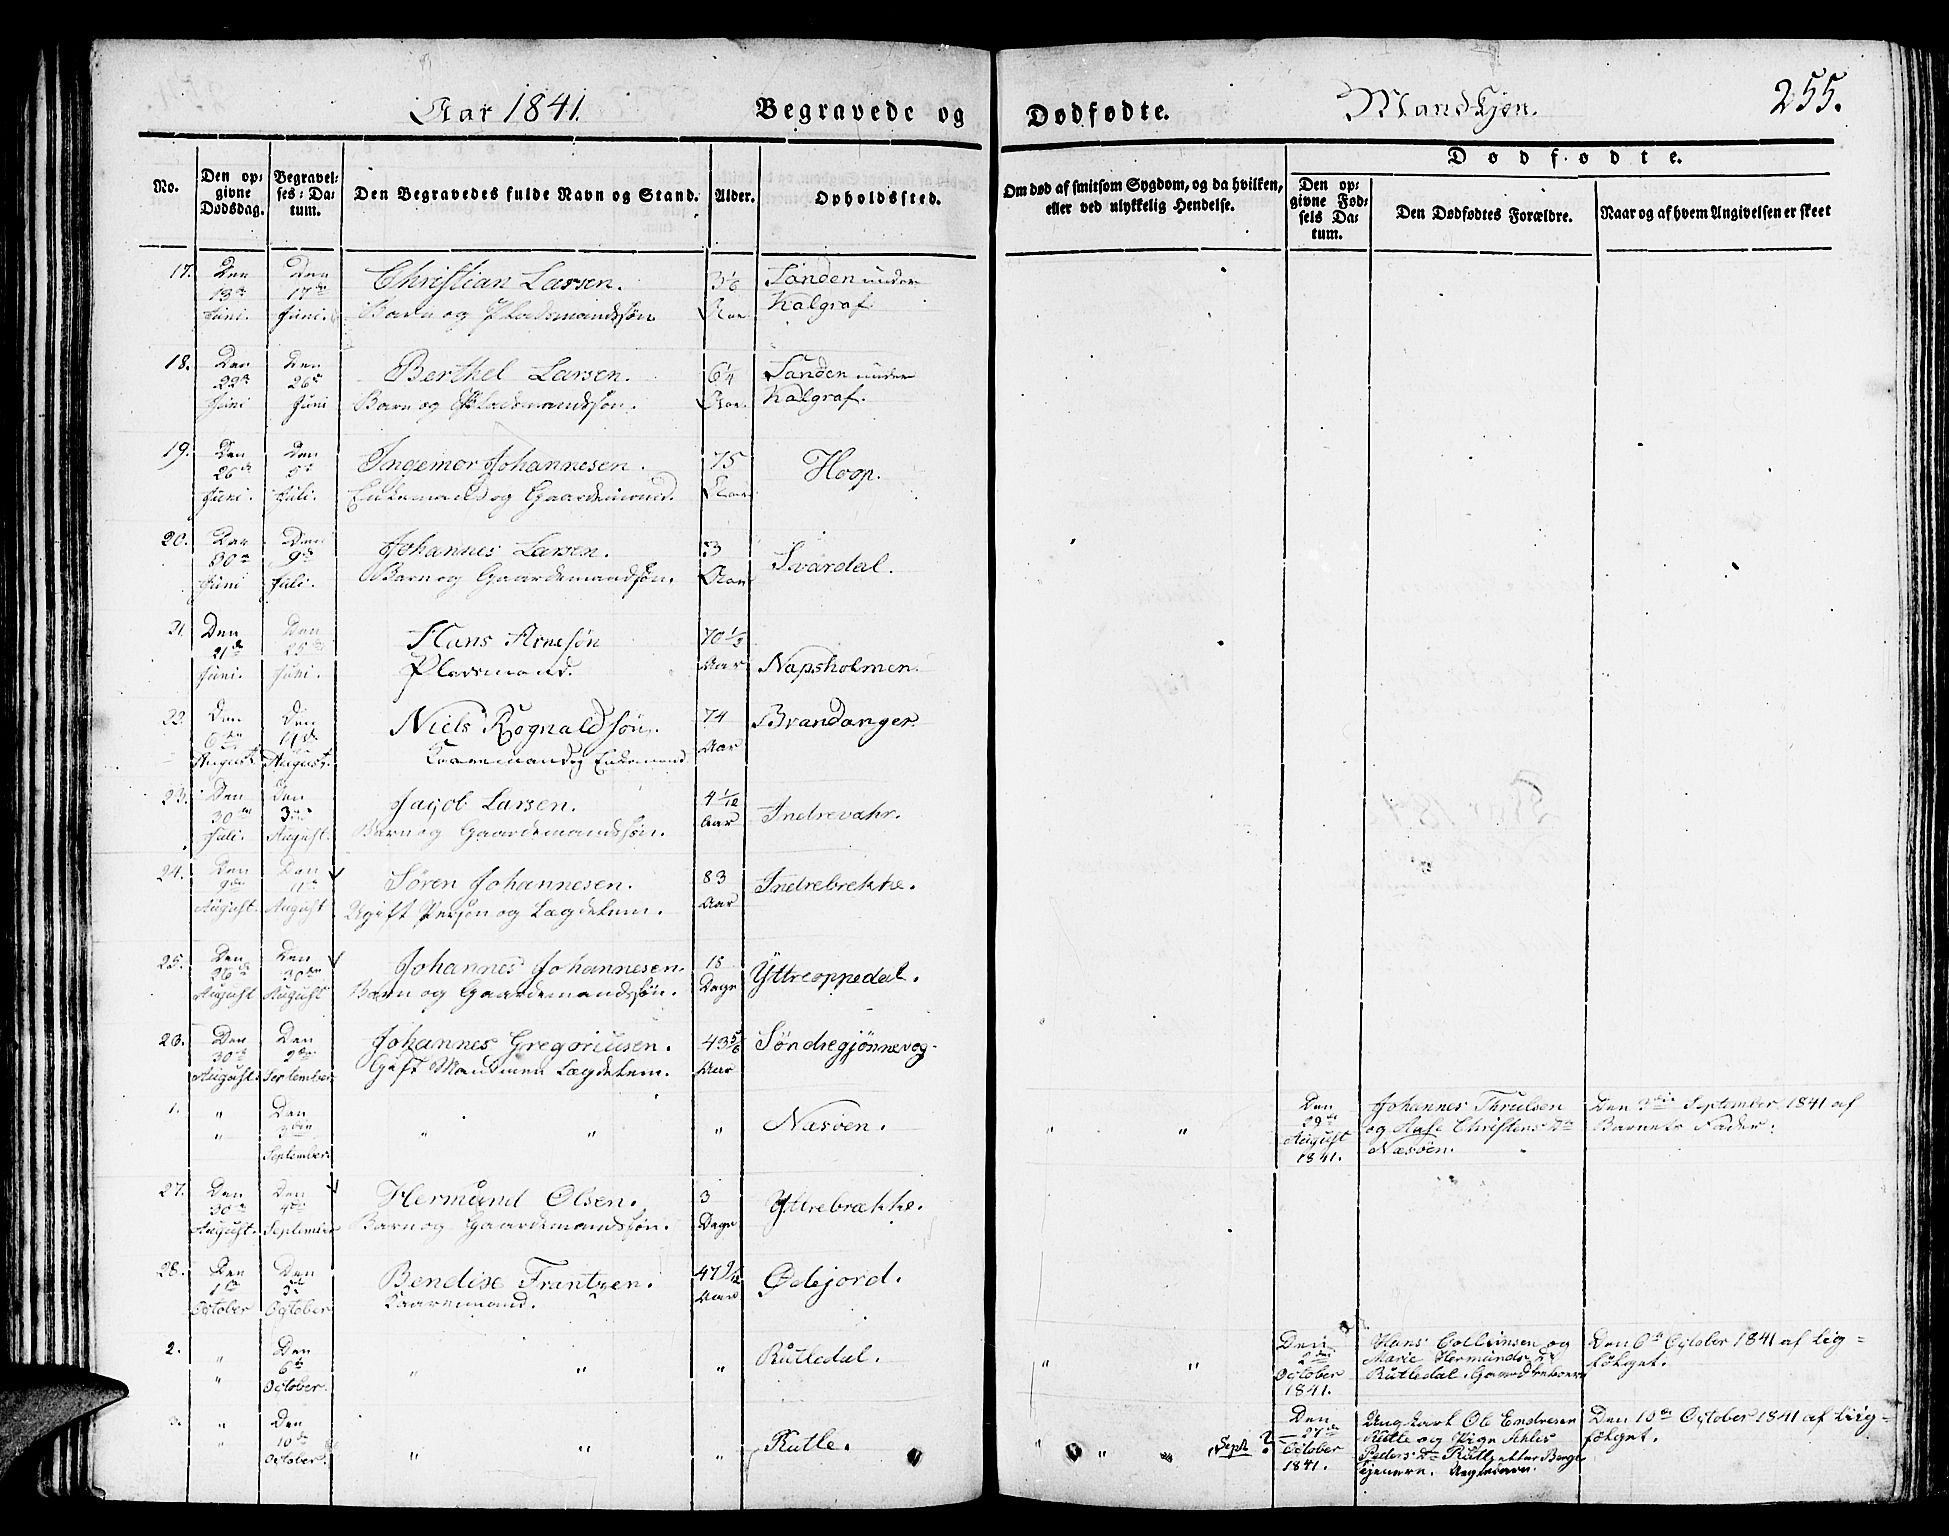 Aar 1841. Begravede og Dødfødte. Mandkjøn. 255.
No.
Den opgivne Dødsdag.
Begravelses-Datum.
Den Begravedes fulde Navn og Stand.
Alder.
Opholdssted.
Om død af smitsom Sygdom, og da hvilken, eller ved ulykkelig Hendelse.
Dødfødte.
Den opgivne Fødsels Datum.
Den Dødfødtes Forældre.
Naar og af hvem Angivelsen er skeet
17. Den Den Christian Larsen. 3 1/6 Sanden under
13de 17de
Juni. Juni. Barn og Pladsmandssøn Aar Kalgraf.
18. Den Den Berthel Larsen. 6 1/4 Sanden under
22de 26de
Juni Juni Barn og Pladsmandssøn. Aar. Kalgraf.
19. Den Den Ingemor Johannesen. 75 Hoop.
26de 5te
Juni. Juli. Enkemand og Gaardemand. Aar
20. Den Den Johannes Larsen. 3 Svardal.
30te 9de
Juni Juli. Barn og Gaardemandssøn. Aar
21. Den Den Hans Arnesøn 70 1/2
21de 25de
Juni. Juni. Pladsmand. Aar Napsholmen.
22. Den Den Niels Rognaldsøn. 74 Brandanger.
6te 11te
August August. Kaaremand og Enkemand Aar
23. Den Den Jacob Larsen. 4 1/12 Indrevahr.
30te 3die
Juli. August. Barn og Gaardemandssøn. Aar
24. Den Den Søren Johannesen. 83 Indrebrekke.
9de 11te
August. August Ugift Person og Lægdelem. Aar
25. Den Den Johannes Johannesen. 18 Yttreoppedal.
26de 30te
August August Barn og Gaardemandssøn. Dage
26. Den Den Johannes Gregoriusen. 43 5/6 Søndregjønnevog.
30te 2den
August. September. Gift Mand men Lægdelem. Aar
1. " Den " " " Næsøen. " " Den Johannes Thrulsen Den 3die September 1841 af
" 3die 29de og Aase Christens Dtr Barnets Fader.
September. August Næsøen.
1841.
27. Den Den Hermund Olsen. 3 Yttrebrække.
30te 4de
August. September Barn og Gaardemandssøn. Dage
28. Den Den Bendixe Frantzen. 47 9/12 Ødejord.
1te 5te
October October Kaaremand. Aar
2. " Den " " " Rutledal. " " Den Hans Collinsen og Den 6te October 1841 af Lig-
" 6te 2den Marie Hermunds Dtr følget.
October. October Rutledal. Gaardbeboere
1841.
3. " Den " " " Rutle. " " " Den Ungkarl Ole Endresen Den 10de October 1841 af Liig-
" 10de Sept ? 27de Rutle og Pige følget.
October. October Peders Dtr Rutle
1841.